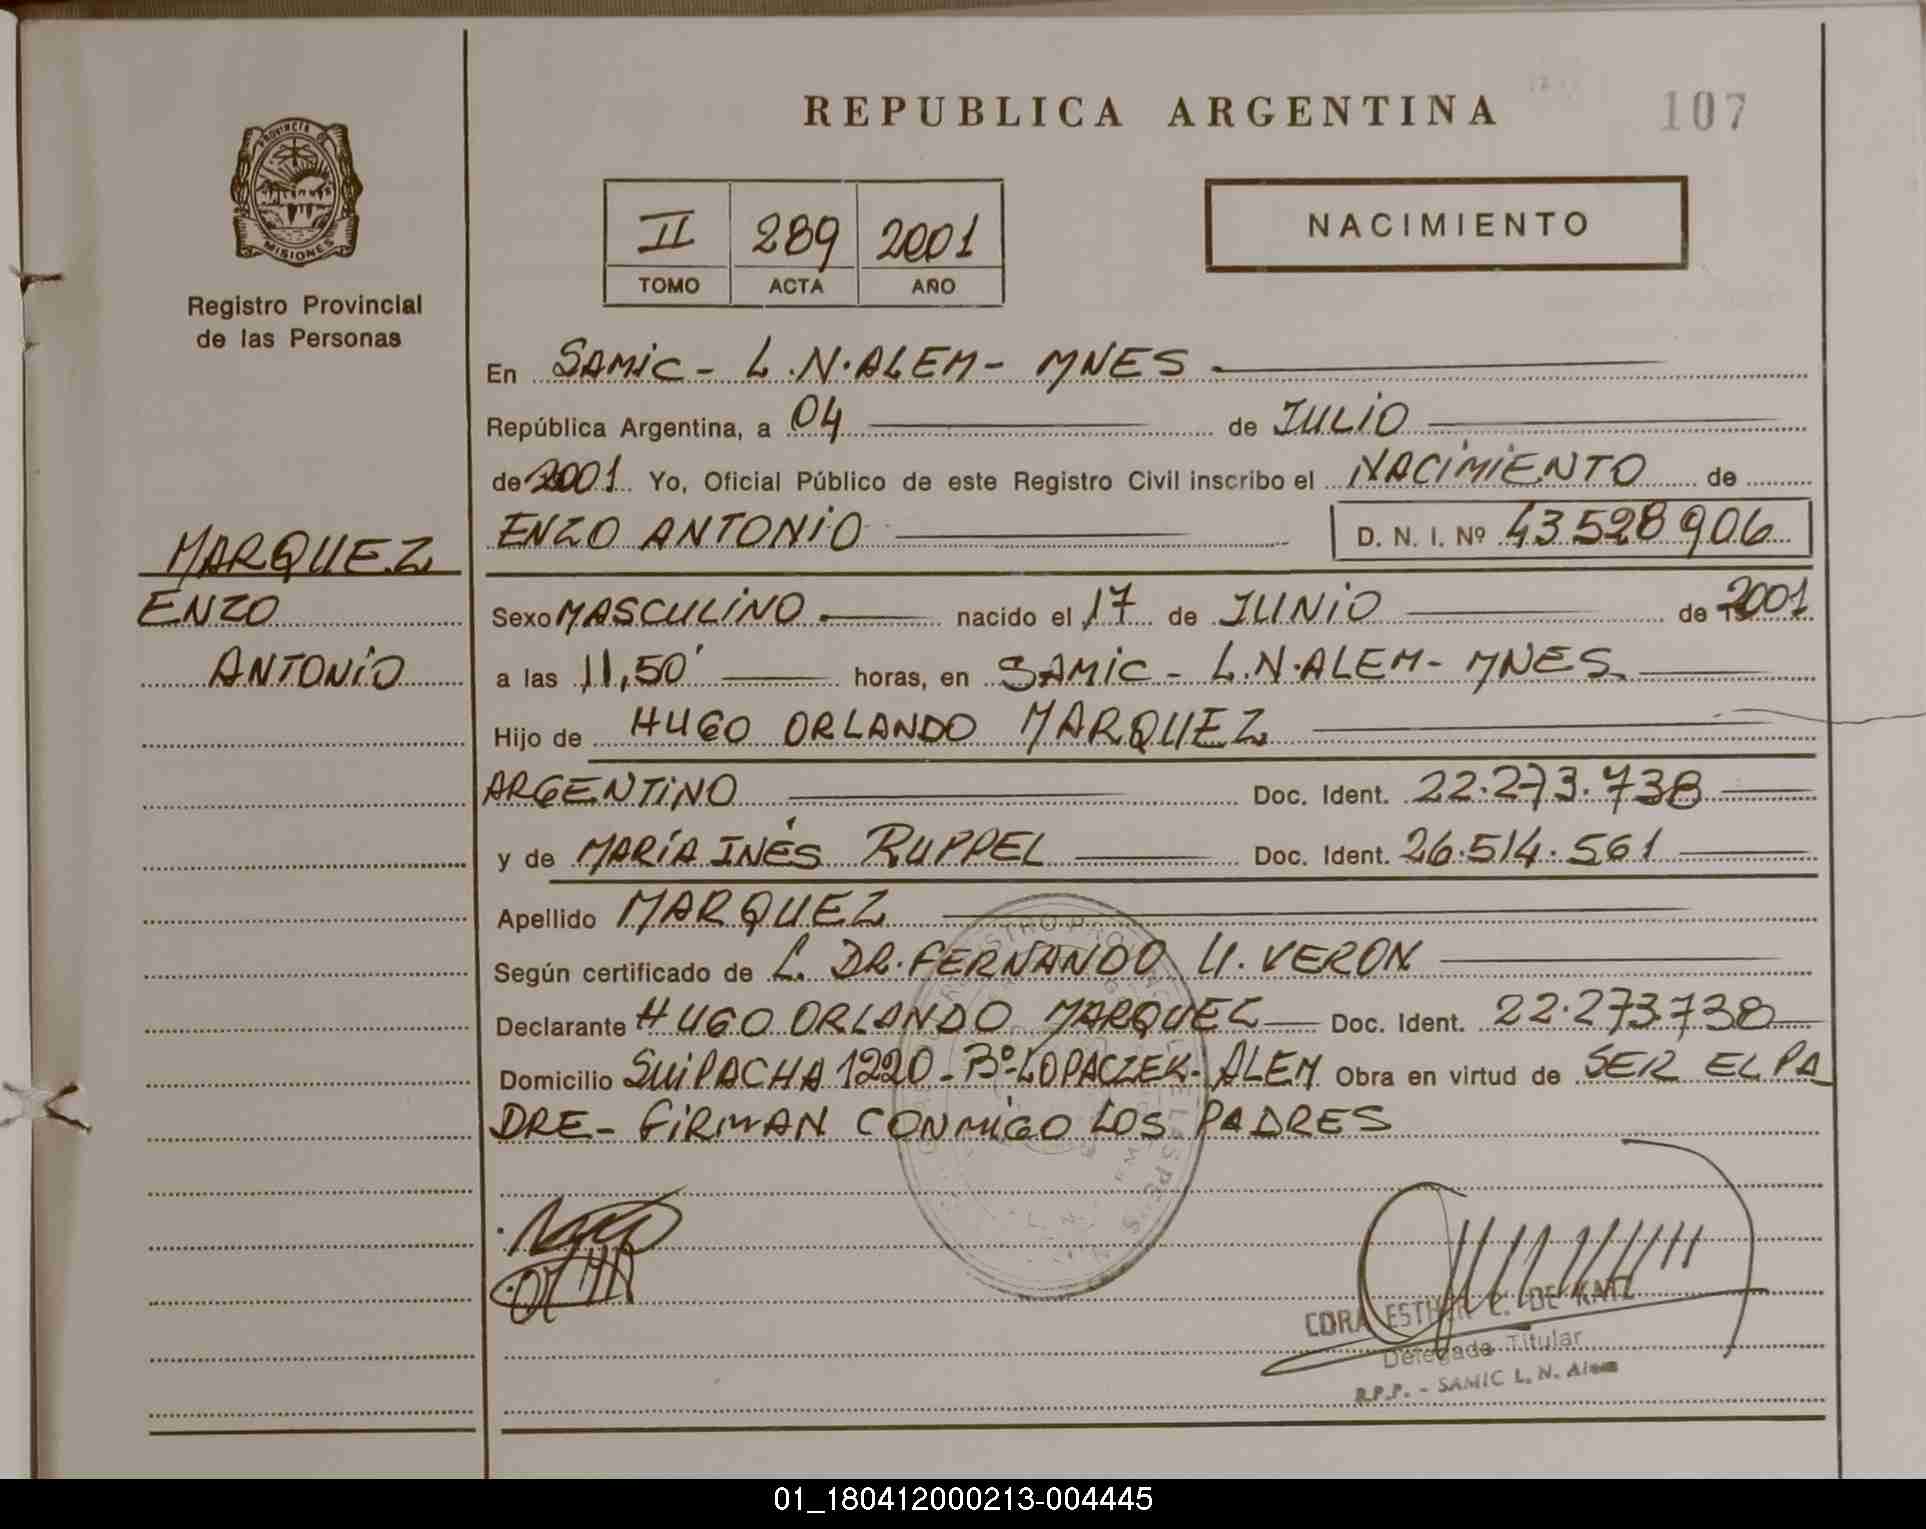 REPUBLICA ARGENTINA
107
PROVINCIA DE
MISIONES
Registro Provincial
de las Personas
II 289 2001
TOMO ACTA AÑO
NACIMIENTO
En SAMIC - L.N.ALEM - MNES
República Argentina, a 04 de JULIO
de 2001 Yo, Oficial Público de este Registro Civil inscribo el NACIMIENTO de
ENZO ANTONIO D. N. I. Nº 43528906
MARQUEZ
ENZO
ANTONIO
Sexo MASCULINO nacido el 17 de JUNIO de 2001
a las 11,50' horas, en SAMIC - L.N.ALEM - MNES
Hijo de HUGO ORLANDO MARQUEZ
ARGENTINO Doc. Ident. 22.273.738
y de MARÍA INÉS RUPPEL Doc. Ident. 26.514.561
Apellido MARQUEZ
Según certificado de DR. FERNANDO VERON
Declarante HUGO ORLANDO MARQUEZ Doc. Ident. 22.273738
Domicilio SUIPACHA 1220 - Bº LOPACZEK - ALEM Obra en virtud de SER EL PA
DRE - FIRMAN CONMIGO LOS PADRES
CORA ESTHER DE KATZ
Delegada Titular
R.P.P. - SAMIC L. N. Alem
01_180412000213-004445